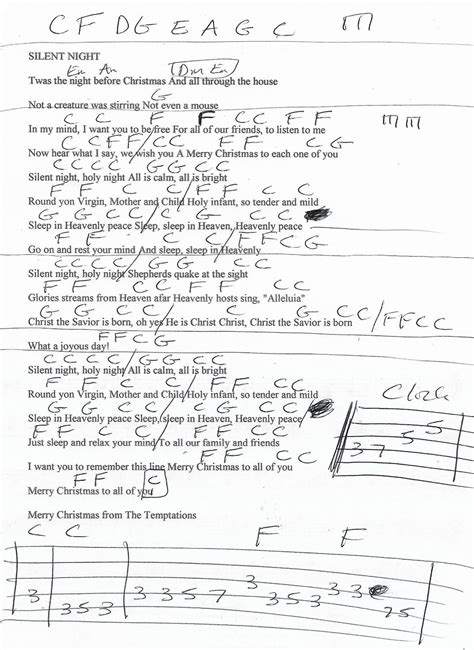 C F D G E A G C m
SILENT NIGHT
Em Am (Dm Em)
Twas the night before Christmas And all through the house
G
Not a creature was stirring Not even a mouse
C C F F C C F F
In my mind, I want you to be free For all of our friends, to listen to me
C C F F / C C F F C G
Now hear what I say, we wish you A Merry Christmas to each one of you
C C C C G G C C
Silent night, holy night All is calm, all is bright
F F C C F F C C
Round yon Virgin, Mother and Child Holy infant, so tender and mild
G G C C / C G C C
Sleep in Heavenly peace Sleep, sleep in Heaven, Heavenly peace
F F C C / F F C G
Go on and rest your mind And sleep, sleep in Heavenly
C C C C / G G C C
Silent night, holy night Shepherds quake at the sight
F F C C F F C C
Glories streams from Heaven afar Heavenly hosts sing, "Alleluia"
G G C C C G C C / F F C C
Christ the Savior is born, oh yes He is Christ Christ, Christ the Savior is born
F F C G
What a joyous day!
C C C C / G G C C
Silent night, holy night All is calm, all is bright
F F C C F F C C
Round yon Virgin, Mother and Child Holy infant, so tender and mild
G G C C C G C C
Sleep in Heavenly peace Sleep, sleep in Heaven, Heavenly peace
F F C C F F C C
Just sleep and relax your mind To all our family and friends
I want you to remember this line Merry Christmas to all of you
F F C
Merry Christmas to all of you
Merry Christmas from The Temptations
3 7 5 5
C C F F
3 3 5 3 3 3 5 7 3 3 5 3 3 3 7 5